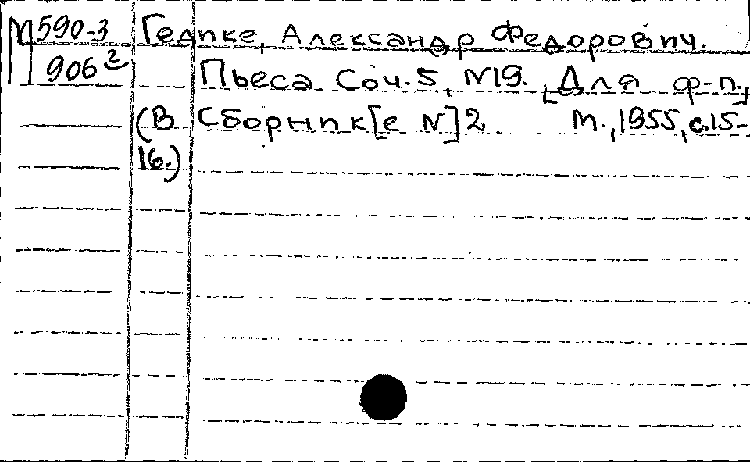 М590-3 Гедике, Александр Федорович.
906² Пьеса. Соч. 5, №19. [Для ф-п.]
(В Сборник[е №] 2 М., 1955, с.15-
16.)